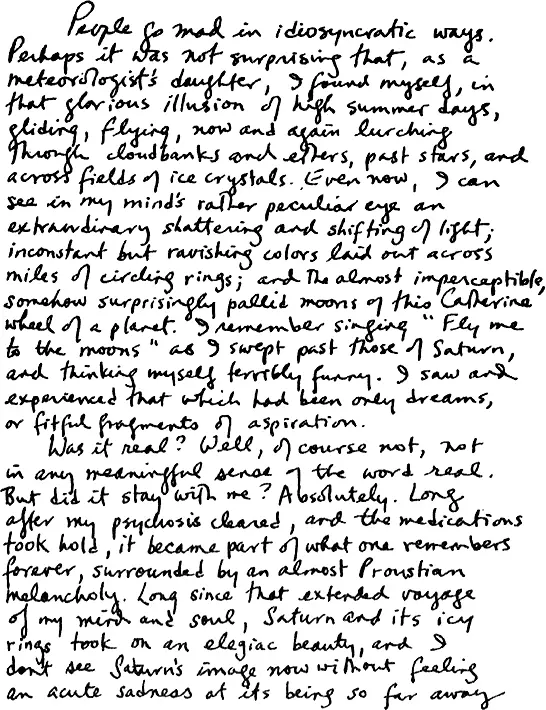 People go mad in idiosyncratic ways.
Perhaps it was not surprising that, as a
meteorologist's daughter, I found myself, in
that glorious illusion of high summer days,
gliding, flying, now and again lurching
through cloudbanks and ethers, past stars, and
across fields of ice crystals. Even now, I can
see in my mind's rather peculiar eye an
extraordinary shattering and shifting of light;
inconstant but ravishing colors laid out across
miles of circling rings; and the almost imperceptible,
somehow surprisingly pallid moons of this Catherine
wheel of a planet. I remember singing "Fly me
to the moons" as I swept past those of Saturn,
and thinking myself terribly funny. I saw and
experienced that which had been only dreams,
or fitful fragments of aspiration.
Was it real? Well, of course not, not
in any meaningful sense of the word real.
But did it stay with me? Absolutely. Long
after my psychosis cleared, and the medications
took hold, it became part of what one remembers
forever, surrounded by an almost Proustian
melancholy. Long since that extended voyage
of my mind and soul, Saturn and its icy
rings took on an elegiac beauty, and I
don't see Saturn's image now without feeling
an acute sadness at its being so far away